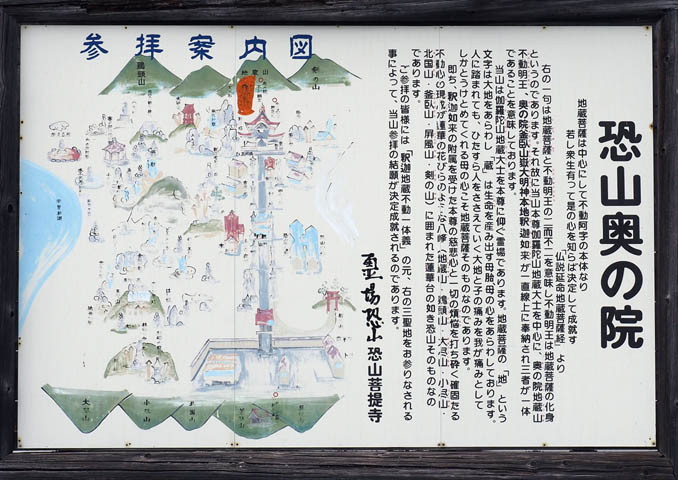 恐山奥の院
地蔵菩薩は中心にして不動阿字の本体なり
若し衆生有って是の心を知らば決定して成就す
仏説延命地蔵菩薩経 より
右の一句は地蔵菩薩と不動明王の二而不二を意味し不動明王は地蔵菩薩の化身
というのであります。それ故に当山本尊伽羅陀山地蔵大士を中心に、奥の院地蔵山
不動明王、奥の院釜臥山嶽大明神本地釈迦如来が一直線上に奉納され三者が一体
であることを意味しております。
当山は伽羅陀山地蔵大士を本尊に仰ぐ霊場であります。地蔵菩薩の「地」という
文字は大地をあらわし「蔵」は生命を産み出す母胎、母の心をあらわしております。
人に踏まれても、ひたすら人をささえていく大地と子の痛みを我が痛みとして
しかとうけとめてくれる母の心こそ地蔵菩薩そのものなのであります。
即ち、釈迦如来の附属を受けた本尊の慈悲心と一切の煩悩を打ち砕く確固たる
不動心の現成が蓮華の花びらのような八峰(地蔵山・鶏頭山・大尽山・小尽山・
北国山・釜臥山・屏風山・剣の山)に囲まれた蓮華台の如き恐山そのものなの
であります。
ご参拝の皆様には「釈迦地蔵不動一体義」の元、右の三聖地をお参りなされる
事によって、当山参拝の結願が決定成就されるのであります。
霊場恐山 恐山菩提寺
参拝案内図
鶏頭山
地蔵山
剣の山
大尽山
小尽山
北国山